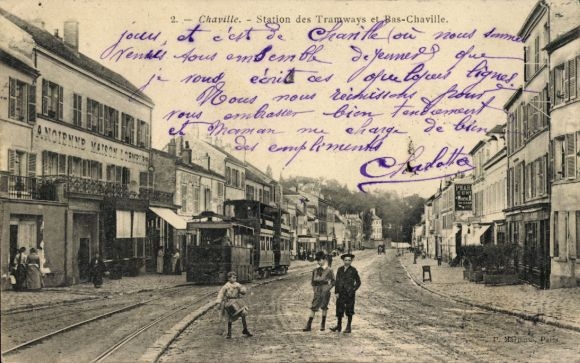 2. - Chaville. - Station des Tramways et Bas-Chaville.
jours, et c'est de Chaville (où nous sommes
venues tous ensemble déjeuner) que
je vous écris ces quelques lignes
Nous nous réunissons pour
vous embrasser bien tendrement
et Maman me charge de bien
des compliments
Charlotte
ANCIENNE MAISON
P. Marmuse, Paris